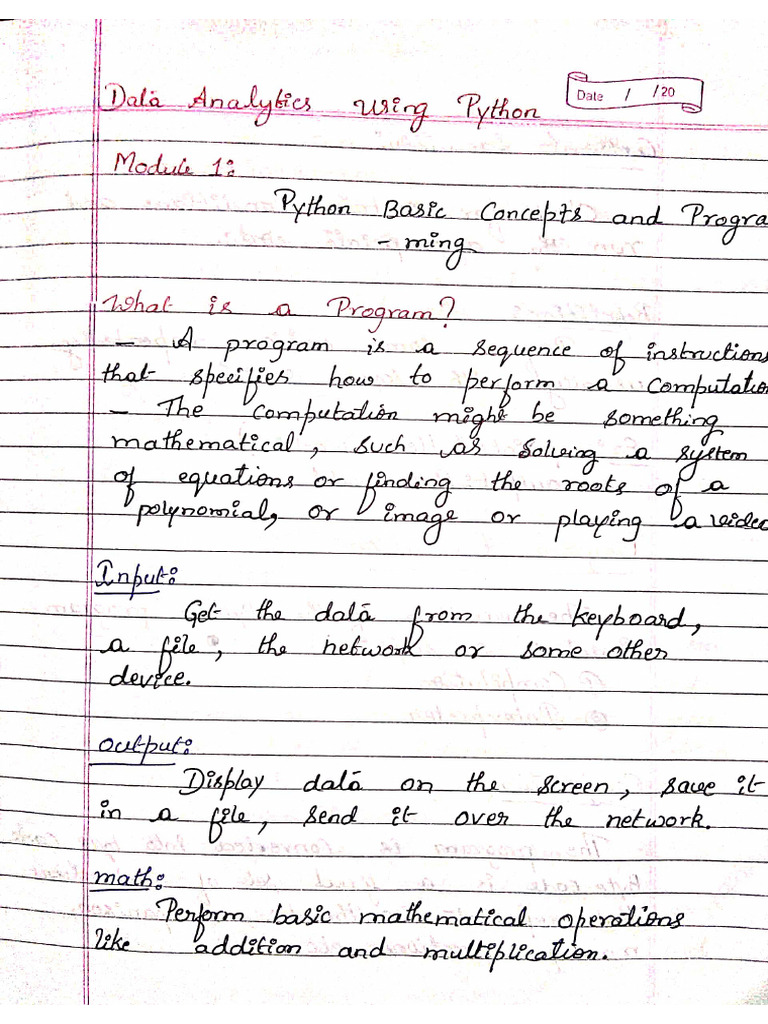 Data Analytics using Python
Date / /20
Module 1:
Python Basic Concepts and Progra
- ming
What is a Program?
- A program is a sequence of instructions
that specifies how to perform a computation
- The computation might be something
mathematical, such as solving a system
of equations or finding the roots of a
polynomial, or image or playing a video
Input:
Get the data from the keyboard,
a file, the network or some other
device.
output:
Display data on the screen, save it
in a file, send it over the network.
math:
Perform basic mathematical operations
like addition and multiplication.